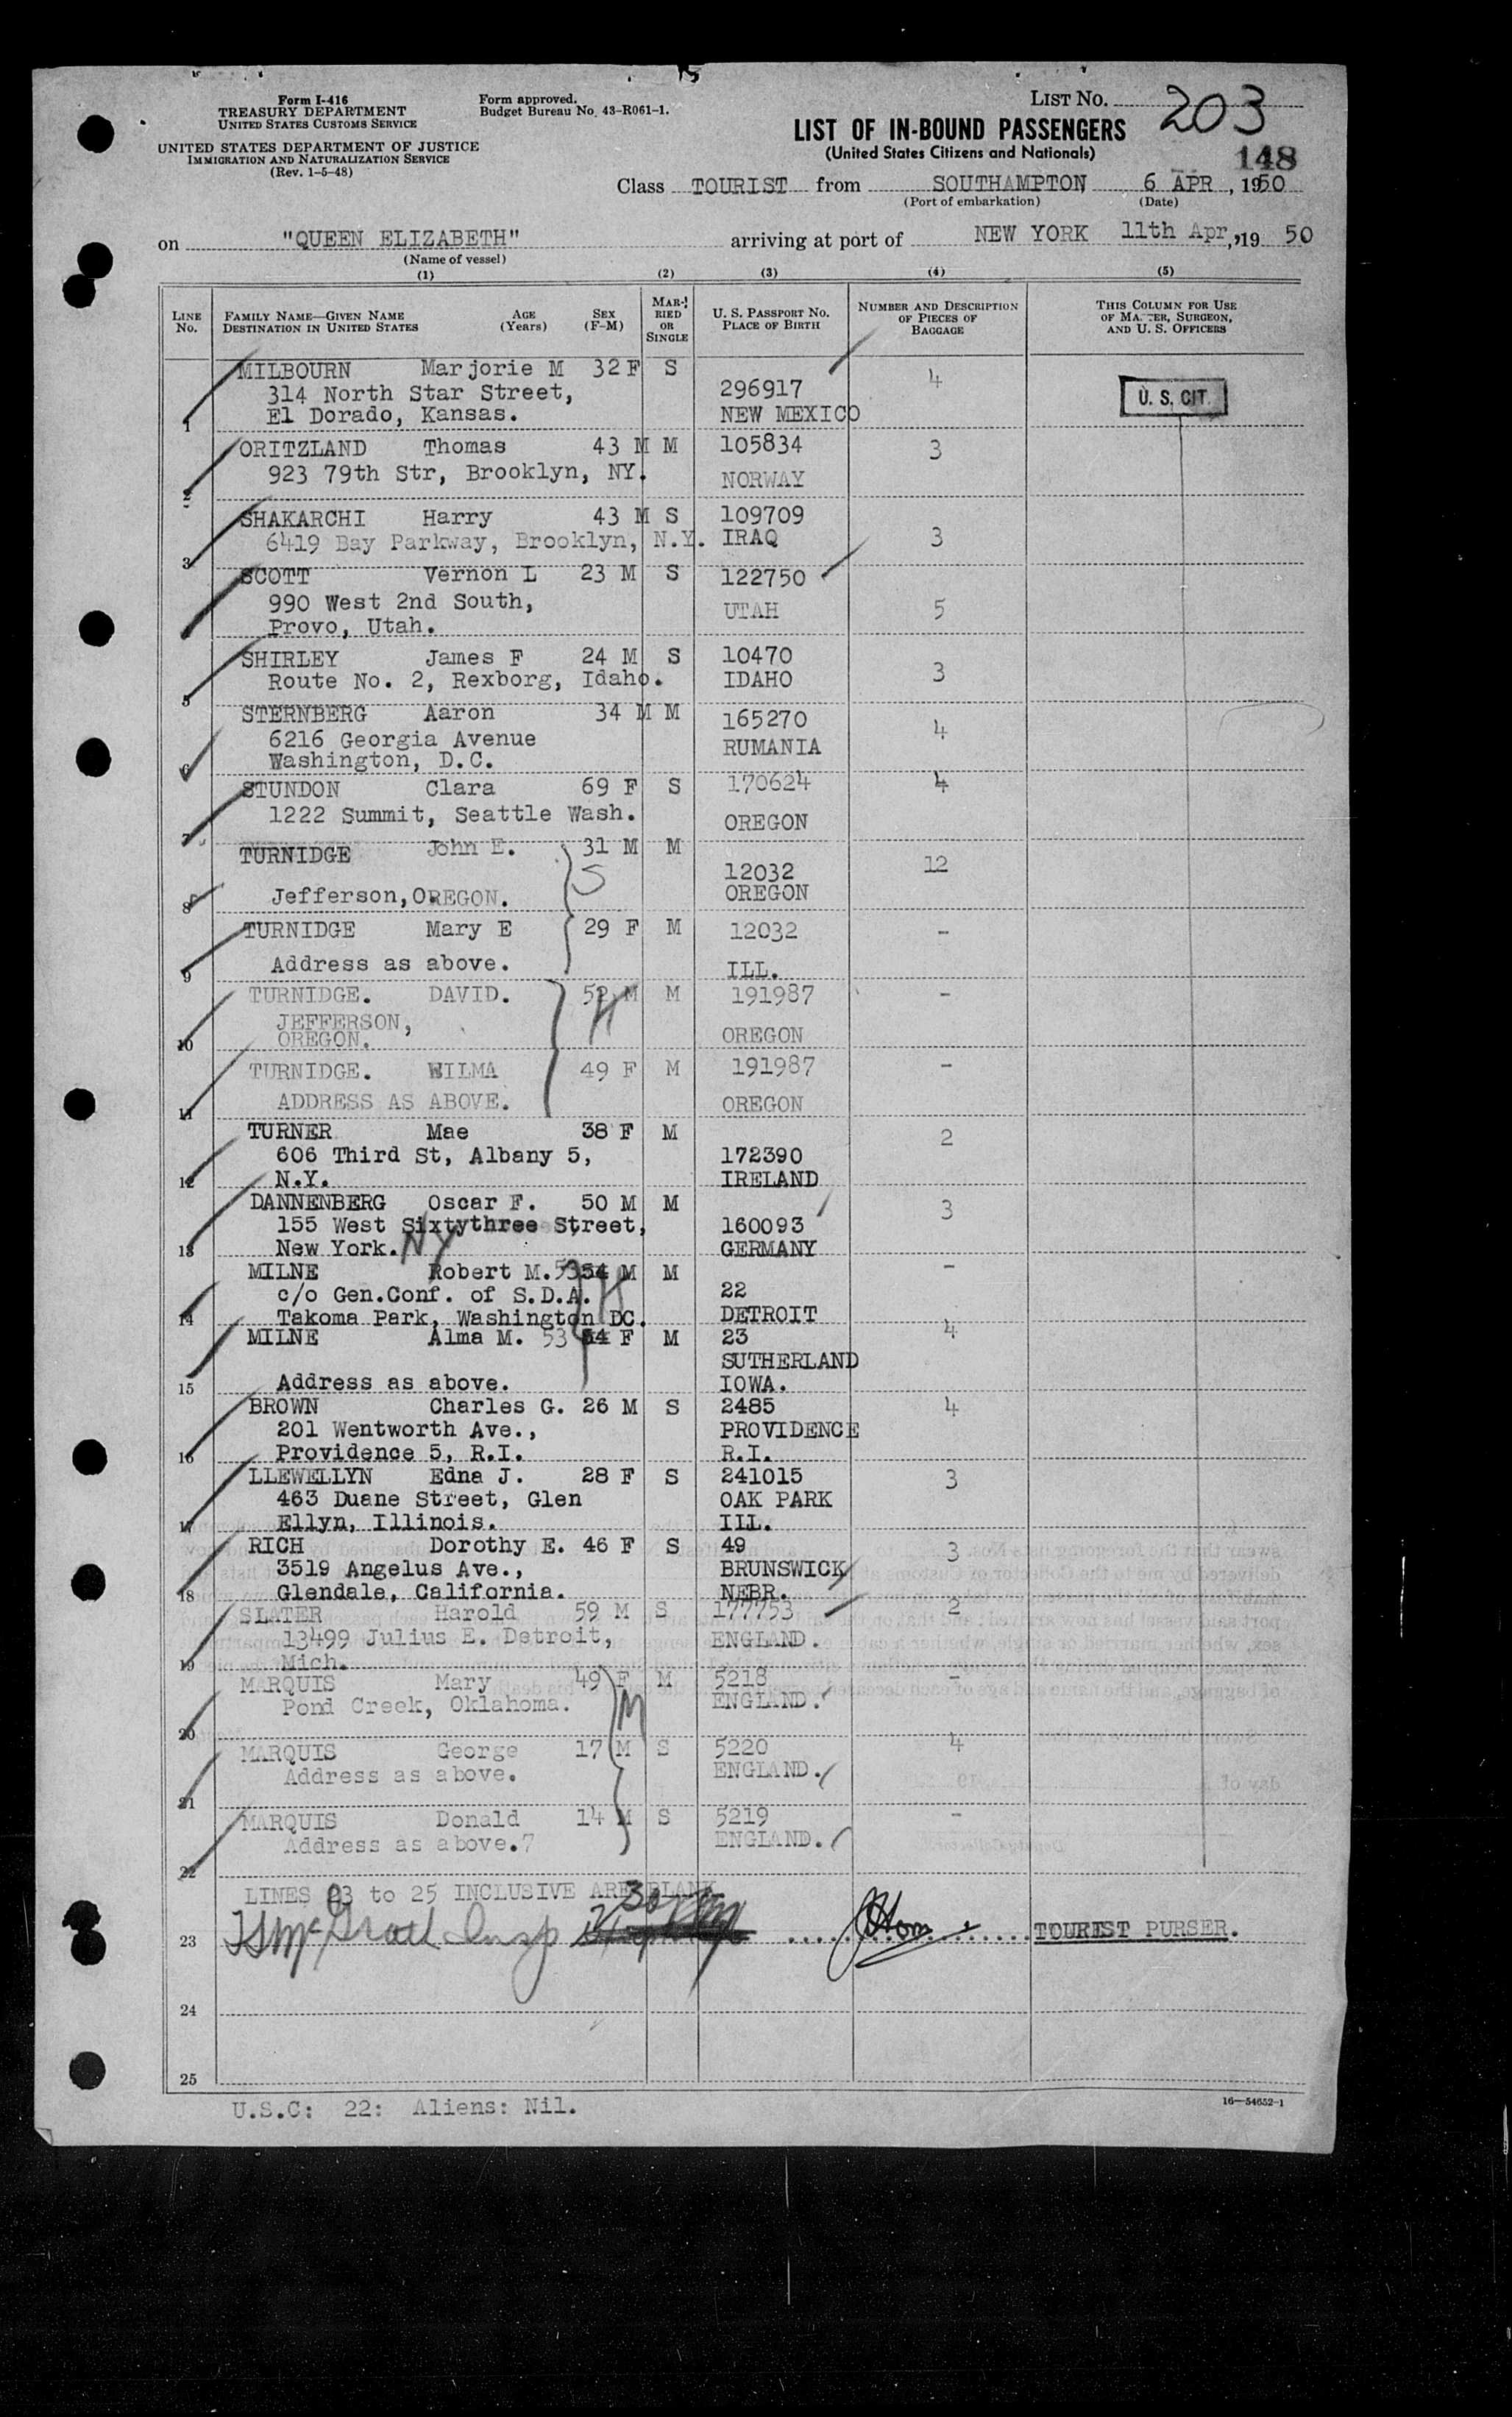 Form I-416
TREASURY DEPARTMENT
UNITED STATES CUSTOMS SERVICE
UNITED STATES DEPARTMENT OF JUSTICE
IMMIGRATION AND NATURALIZATION SERVICE
(Rev. 1-5-48)
Form approved.
Budget Bureau No. 43-R061-1.
LIST NO. 203
LIST OF IN-BOUND PASSENGERS
(United States Citizens and Nationals)
148
Class TOURIST from SOUTHAMPTON 6 APR, 1950
(Port of embarkation) (Date)
on "QUEEN ELIZABETH" arriving at port of NEW YORK 11th Apr, 19 50
(Name of vessel)
(1) (2) (3) (4) (5)
LINE No. FAMILY NAME—GIVEN NAME DESTINATION IN UNITED STATES AGE (Years) SEX (F-M) MARRIED OR SINGLE U. S. PASSPORT NO. PLACE OF BIRTH NUMBER AND DESCRIPTION OF PIECES OF BAGGAGE THIS COLUMN FOR USE OF MASTER, SURGEON, AND U. S. OFFICERS
MILBOURN Marjorie M 32 F S
314 North Star Street, 296917 4 U. S. CIT.
1 El Dorado, Kansas. NEW MEXICO
ORITZLAND Thomas 43 M M 105834 3
923 79th Str, Brooklyn, NY.
2 NORWAY
SHAKARCHI Harry 43 M S 109709
6419 Bay Parkway, Brooklyn, N.Y. IRAQ 3
3
SCOTT Vernon L 23 M S 122750
990 West 2nd South, UTAH 5
Provo, Utah.
SHIRLEY James F 24 M S 10470
Route No. 2, Rexborg, Idaho. IDAHO 3
5
STERNBERG Aaron 34 M M 165270
6216 Georgia Avenue RUMANIA 4
6 Washington, D.C.
STUNDON Clara 69 F S 170624 4
1222 Summit, Seattle Wash. OREGON
7
TURNIDGE John E. 31 M M
S 12032 12
8 Jefferson, OREGON. OREGON
TURNIDGE Mary E 29 F M 12032 -
9 Address as above. ILL.
TURNIDGE. DAVID. 52 M M 191987 -
JEFFERSON,
10 OREGON. OREGON
TURNIDGE. WILMA 49 F M 191987 -
11 ADDRESS AS ABOVE. OREGON
TURNER Mae 38 F M 2
606 Third St, Albany 5, 172390
12 N.Y. IRELAND
DANNENBERG Oscar F. 50 M M 3
155 West Sixtythree Street, 160093
13 New York. NY GERMANY
MILNE Robert M. 53 54 M M -
c/o Gen.Conf. of S.D.A. H 22
14 Takoma Park, Washington DC. DETROIT
MILNE Alma M. 53 54 F M 23 4
SUTHERLAND
15 Address as above. IOWA.
BROWN Charles G. 26 M S 2485 4
201 Wentworth Ave., PROVIDENCE
16 Providence 5, R.I. R.I.
LLEWELLYN Edna J. 28 F S 241015 3
463 Duane Street, Glen OAK PARK
17 Ellyn, Illinois. ILL.
RICH Dorothy E. 46 F S 49 3
3519 Angelus Ave., BRUNSWICK
18 Glendale, California. NEBR.
SLATER Harold 59 M S 177753 2
13499 Julius E. Detroit, ENGLAND.
19 Mich.
MARQUIS Mary 49 F M 5218 -
Pond Creek, Oklahoma. M ENGLAND.
20
MARQUIS George 17 M S 5220 4
Address as above. ENGLAND.
21
MARQUIS Donald 14 M S 5219 -
Address as above.7 ENGLAND.
22
LINES 23 to 25 INCLUSIVE ARE BLANK
23 TOURIST PURSER.
24
25
U.S.C: 22: Aliens: Nil.
16—54652-1